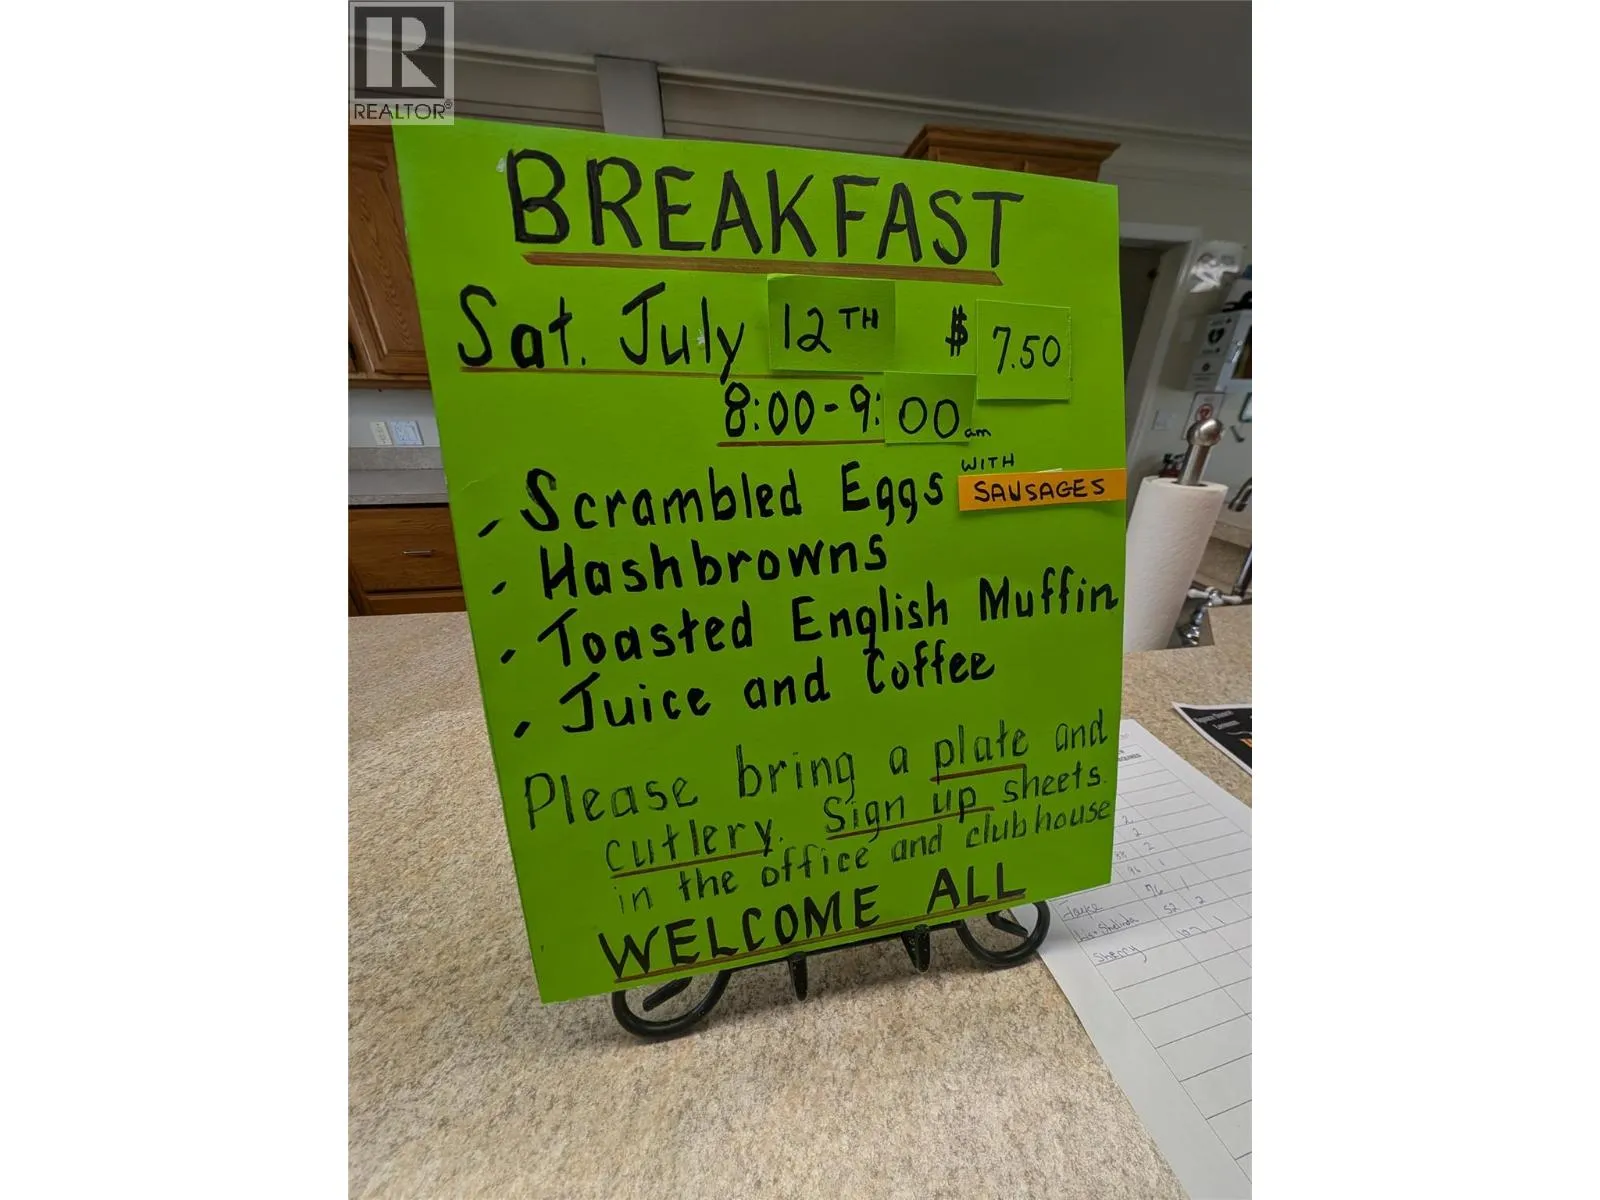 REALTOR®
BREAKFAST
Sat. July 12TH $ 7.50
8:00-9:00am
Scrambled Eggs WITH SAUSAGES
Hashbrowns
Toasted English Muffin
Juice and Coffee
Please bring a plate and
cutlery. Sign up sheets
in the office and clubhouse
WELCOME ALL
Joyce 76 1
52 2
Sherry 1